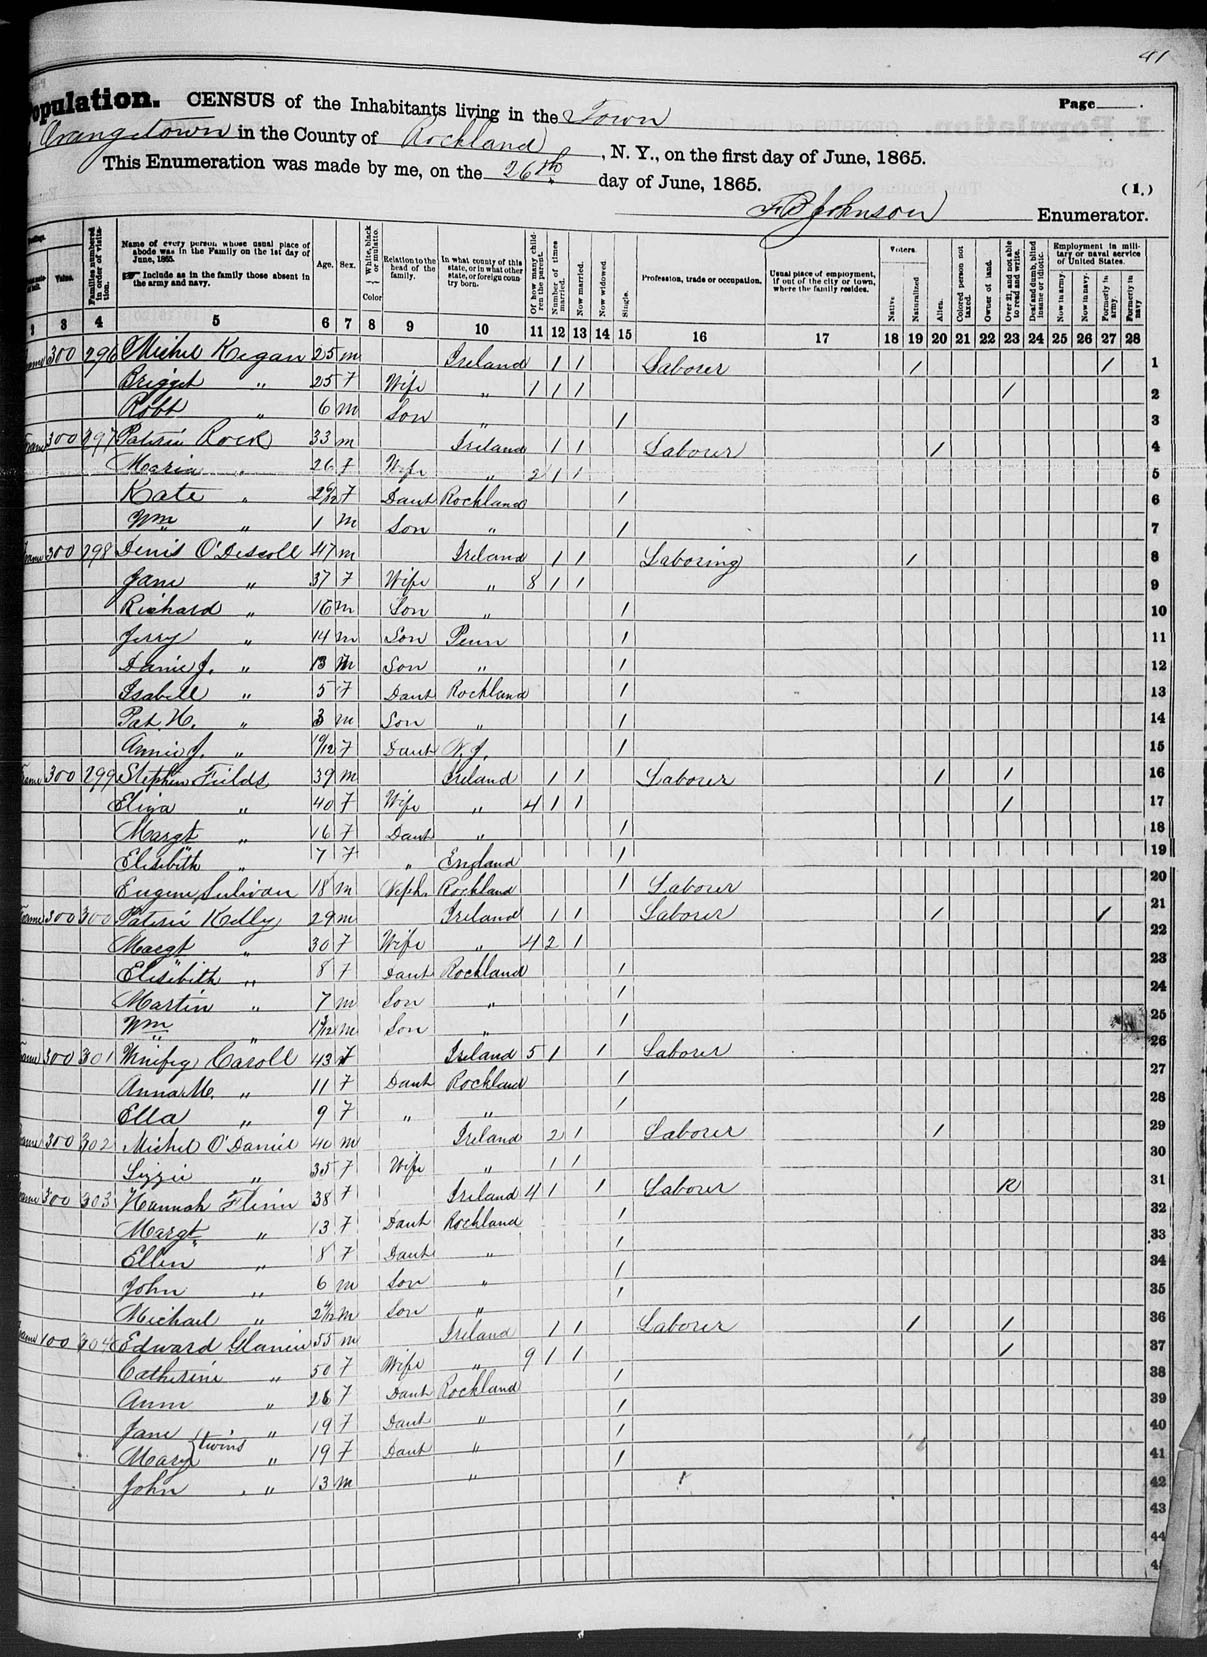 41
Population. CENSUS of the Inhabitants living in the Town Page
Orangetown in the County of Rockland, N. Y., on the first day of June, 1865.
This Enumeration was made by me, on the 26th day of June, 1865. (1.)
F B Johnson Enumerator.
Value. Families numbered in order of visitation. Name of every person whose usual place of abode was in the Family on the 1st day of June, 1865. Include as in the family those absent in the army and navy. Age. Sex. White, black or mulatto. Color Relation to the head of the family. In what county of this state, or in what other state, or foreign country born. Of how many children the parent. Number of times married. Now married. Now widowed. Single. Profession, trade or occupation. Usual place of employment, if out of the city or town, where the family resides. Voters. Native Naturalized Alien. Colored person not taxed. Owner of land. Over 21, and not able to read and write. Deaf and dumb, blind insane or idiotic. Employment in military or naval service of United States. Now in army. Now in navy. Formerly in army. Formerly in navy
3 4 5 6 7 8 9 10 11 12 13 14 15 16 17 18 19 20 21 22 23 24 25 26 27 28
300 296 Michel Kegan 25 m Ireland 1 1 Laborer 1 1 1
Brigget " 25 F Wife " 1 1 1 1 2
Robt " 6 m Son " 1 3
300 297 Patric Rock 33 m Ireland 1 1 Laborer 1 4
Maria " 26 F Wife " 2 1 1 5
Kate " F Daut Rockland 1 6
Wm " 1 m Son " 1 7
300 298 Denis O'Discoll 47 m Ireland 1 1 Laboring 1 8
Jane " 37 F Wife " 8 1 1 9
Richard " 16 m Son " 1 10
Jerry " 14 m Son Penn 1 11
Danie J. " 13 m Son " 1 12
Isabell " 5 F Daut Rockland 1 13
Pat. H. " 3 m Son " 1 14
Annie J. " 10/12 F Daut N.J. 1 15
300 299 Stephen Fields 39 m Ireland 1 1 Laborer 1 1 16
Eliza " 40 F Wife " 4 1 1 1 17
Margt " 16 F Daut " 1 18
Elisibith " 7 F " England 1 19
Eugene Sulivan 18 m Neph. Rockland 1 Laborer 20
300 300 Patric Kelly 29 m Ireland 1 1 Laborer 1 1 21
Margt " 30 F Wife " 4 2 1 22
Elisibith " 8 F Daut Rockland 1 23
Martin " 7 m Son " 1 24
Wm " m Son " 1 25
300 301 Winifig Caroll 43 F Ireland 5 1 1 Laborer 26
Anna M. " 11 F Daut Rockland 1 27
Ella " 9 F " " 1 28
300 302 Michel O'Daniel 40 m Ireland 2 1 Laborer 1 29
Lizzie " 35 F Wife " 1 1 30
300 303 Hannah Flinn 38 F Ireland 4 1 1 Laborer R 31
Margt " 13 F Daut Rockland 1 32
Ellen " 8 F Daut " 1 33
John " 6 m Son " 1 34
Michael " m Son " 1 35
100 304 Edward Glanin 55 m Ireland 1 1 Laborer 1 1 36
Catherine " 50 F Wife " 9 1 1 1 37
Ann " 26 F Daut Rockland 1 38
Jane " 19 F Daut " 1 39
twins
Mary " 19 F Daut " 1 40
John " 13 m " 1 41
42
43
44